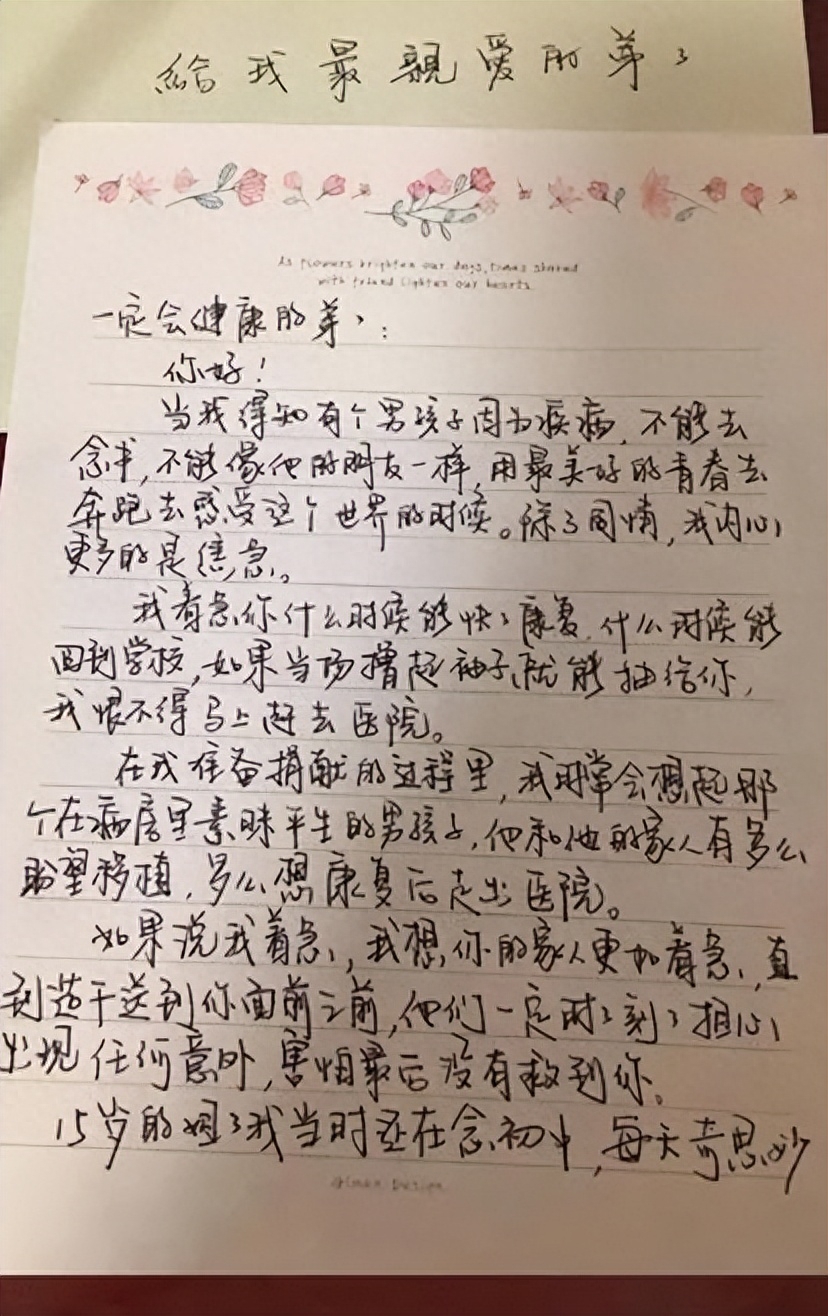 給我最親愛的弟々
As flowers brighten our days, times shared
with friend lighten our hearts.
一定会健康的弟々:
你好!
当我得知有个男孩子因为疾病,不能去
念书,不能像他的朋友一样,用最美好的青春去
奔跑去感受这个世界的时候。除了同情,我内心
更多的是焦急。
我着急你什么时候能快々康复,什么时候能
回到学校,如果当场撸起袖子就能抽给你,
我恨不得马上赶去医院。
在我准备捐献的过程里,我时常会想起那
个在病房里素昧平生的男孩子,他和他的家人有多么
盼望移植,多么想康复后走出医院。
如果说我着急,我想你的家人更加着急,直
到造干送到你面前之前,他们一定时々刻々担心
出现任何意外,害怕最后没有救到你。
15岁的姐々我当时还在念初中,每天奇思妙
Design